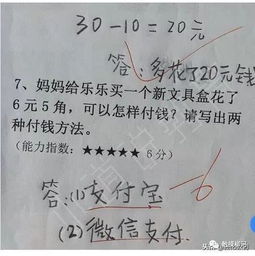 30－10＝20元
答:多花了20元钱
7、妈妈给乐乐买一个新文具盒花了
6元5角，可以怎样付钱？请写出两
种付钱方法。
(能力指数：★★★★★ 6分)
答:(1)支付宝 -6
(2)微信支付.